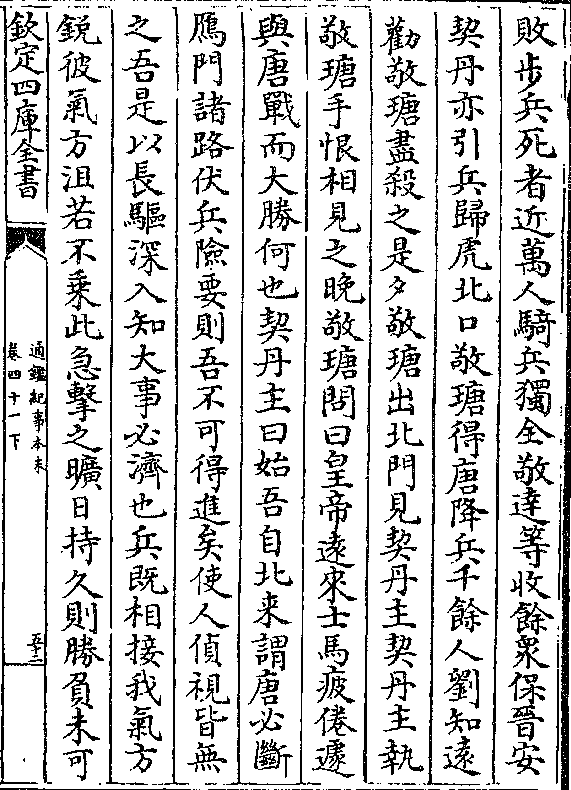 敗步兵死者近萬人騎兵獨全敬達等收餘衆保晉安
契丹亦引兵歸虎北口敬瑭得唐降兵千餘人劉知遠
勸敬瑭盡殺之是夕敬瑭出北門見契丹主契丹主執
敬瑭手恨相見之晚敬瑭問曰皇帝逺來士馬疲倦遽
與唐戰而大勝何也契丹主曰始吾自北来謂唐必斷
鴈門諸路伏兵險要則吾不可得進矣使人偵視皆無
之吾是以長驅深入知大事必濟也兵既相接我氣方
鋭彼氣方沮若不乗此急擊之曠日持久則勝負未可
欽定四庫全書
通鑑紀事本末
卷四十一下
五十三